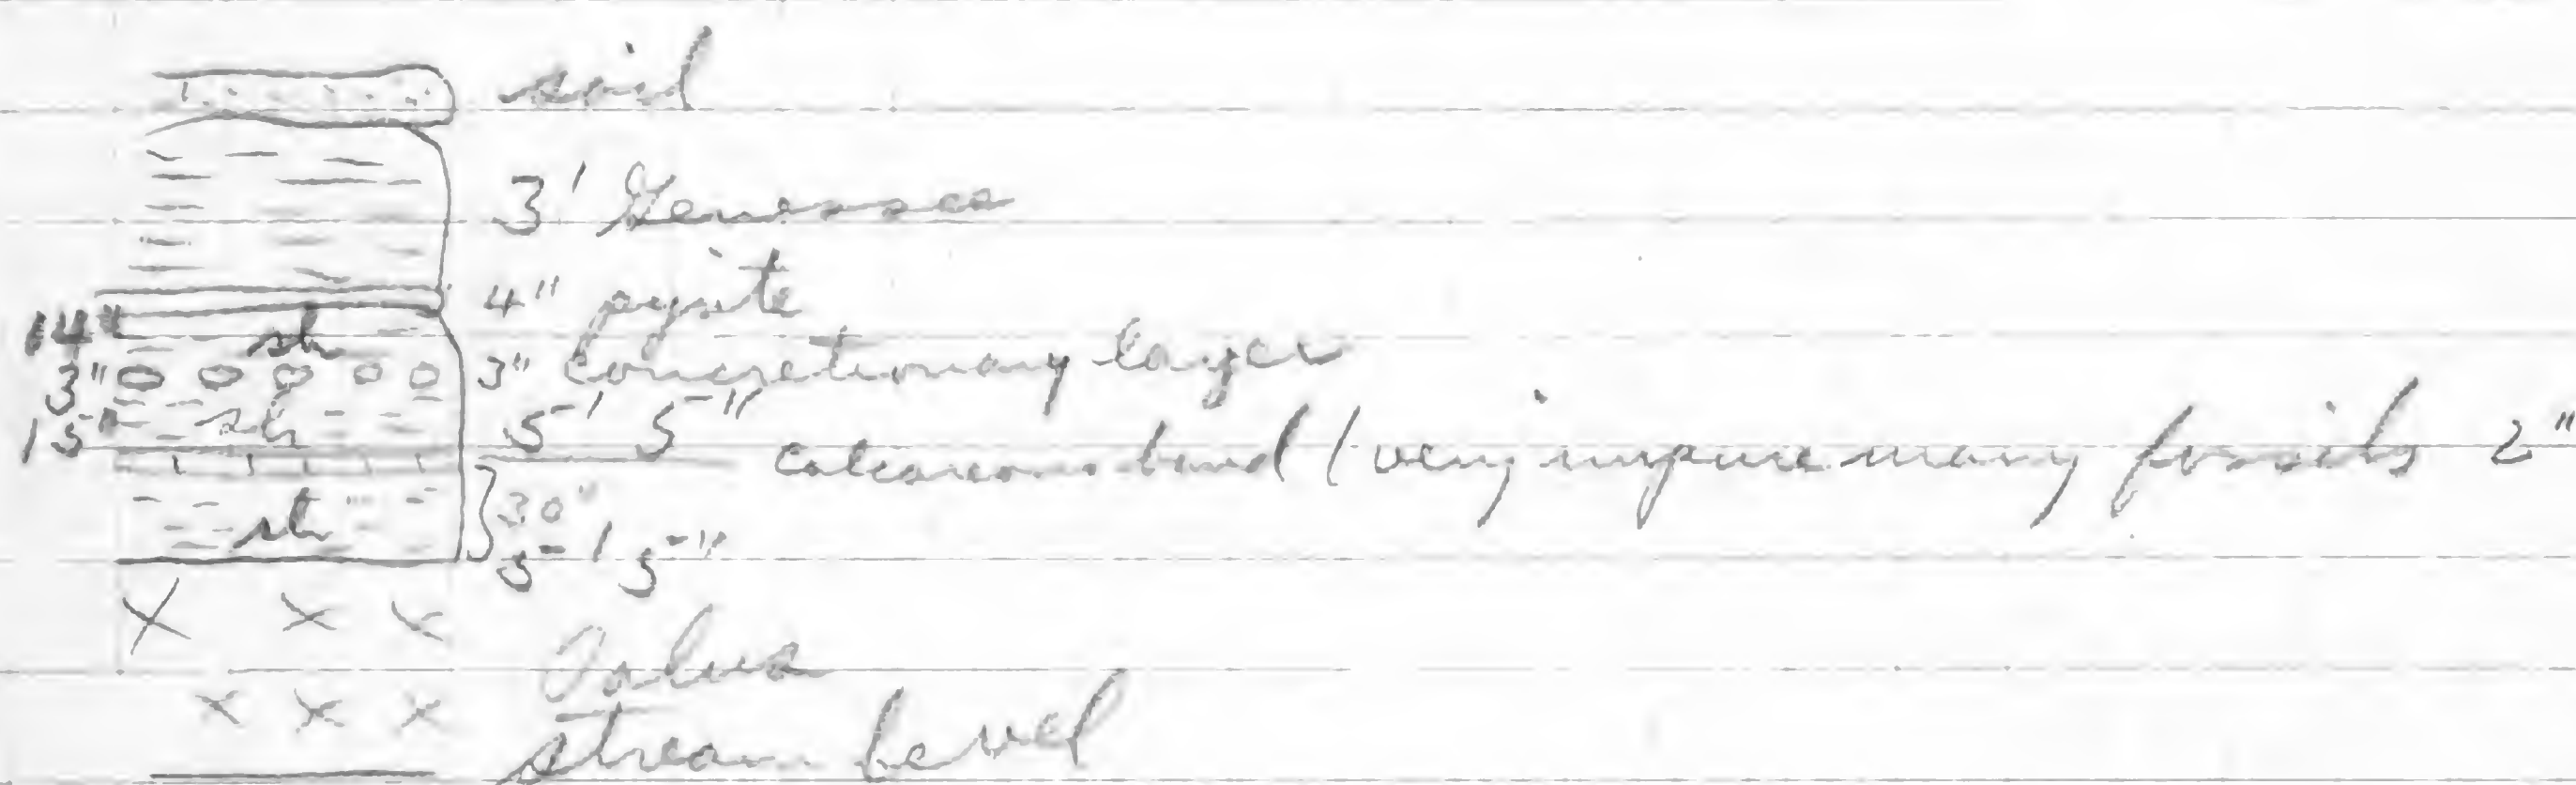 soil
3' Genessee
4" pyrite
14" sh
3" 3" concretionary layer
15" sh 5' 5"
calcareous band (very impure many fossils 2"
sh 30"
5' 5"
Talus
stream level